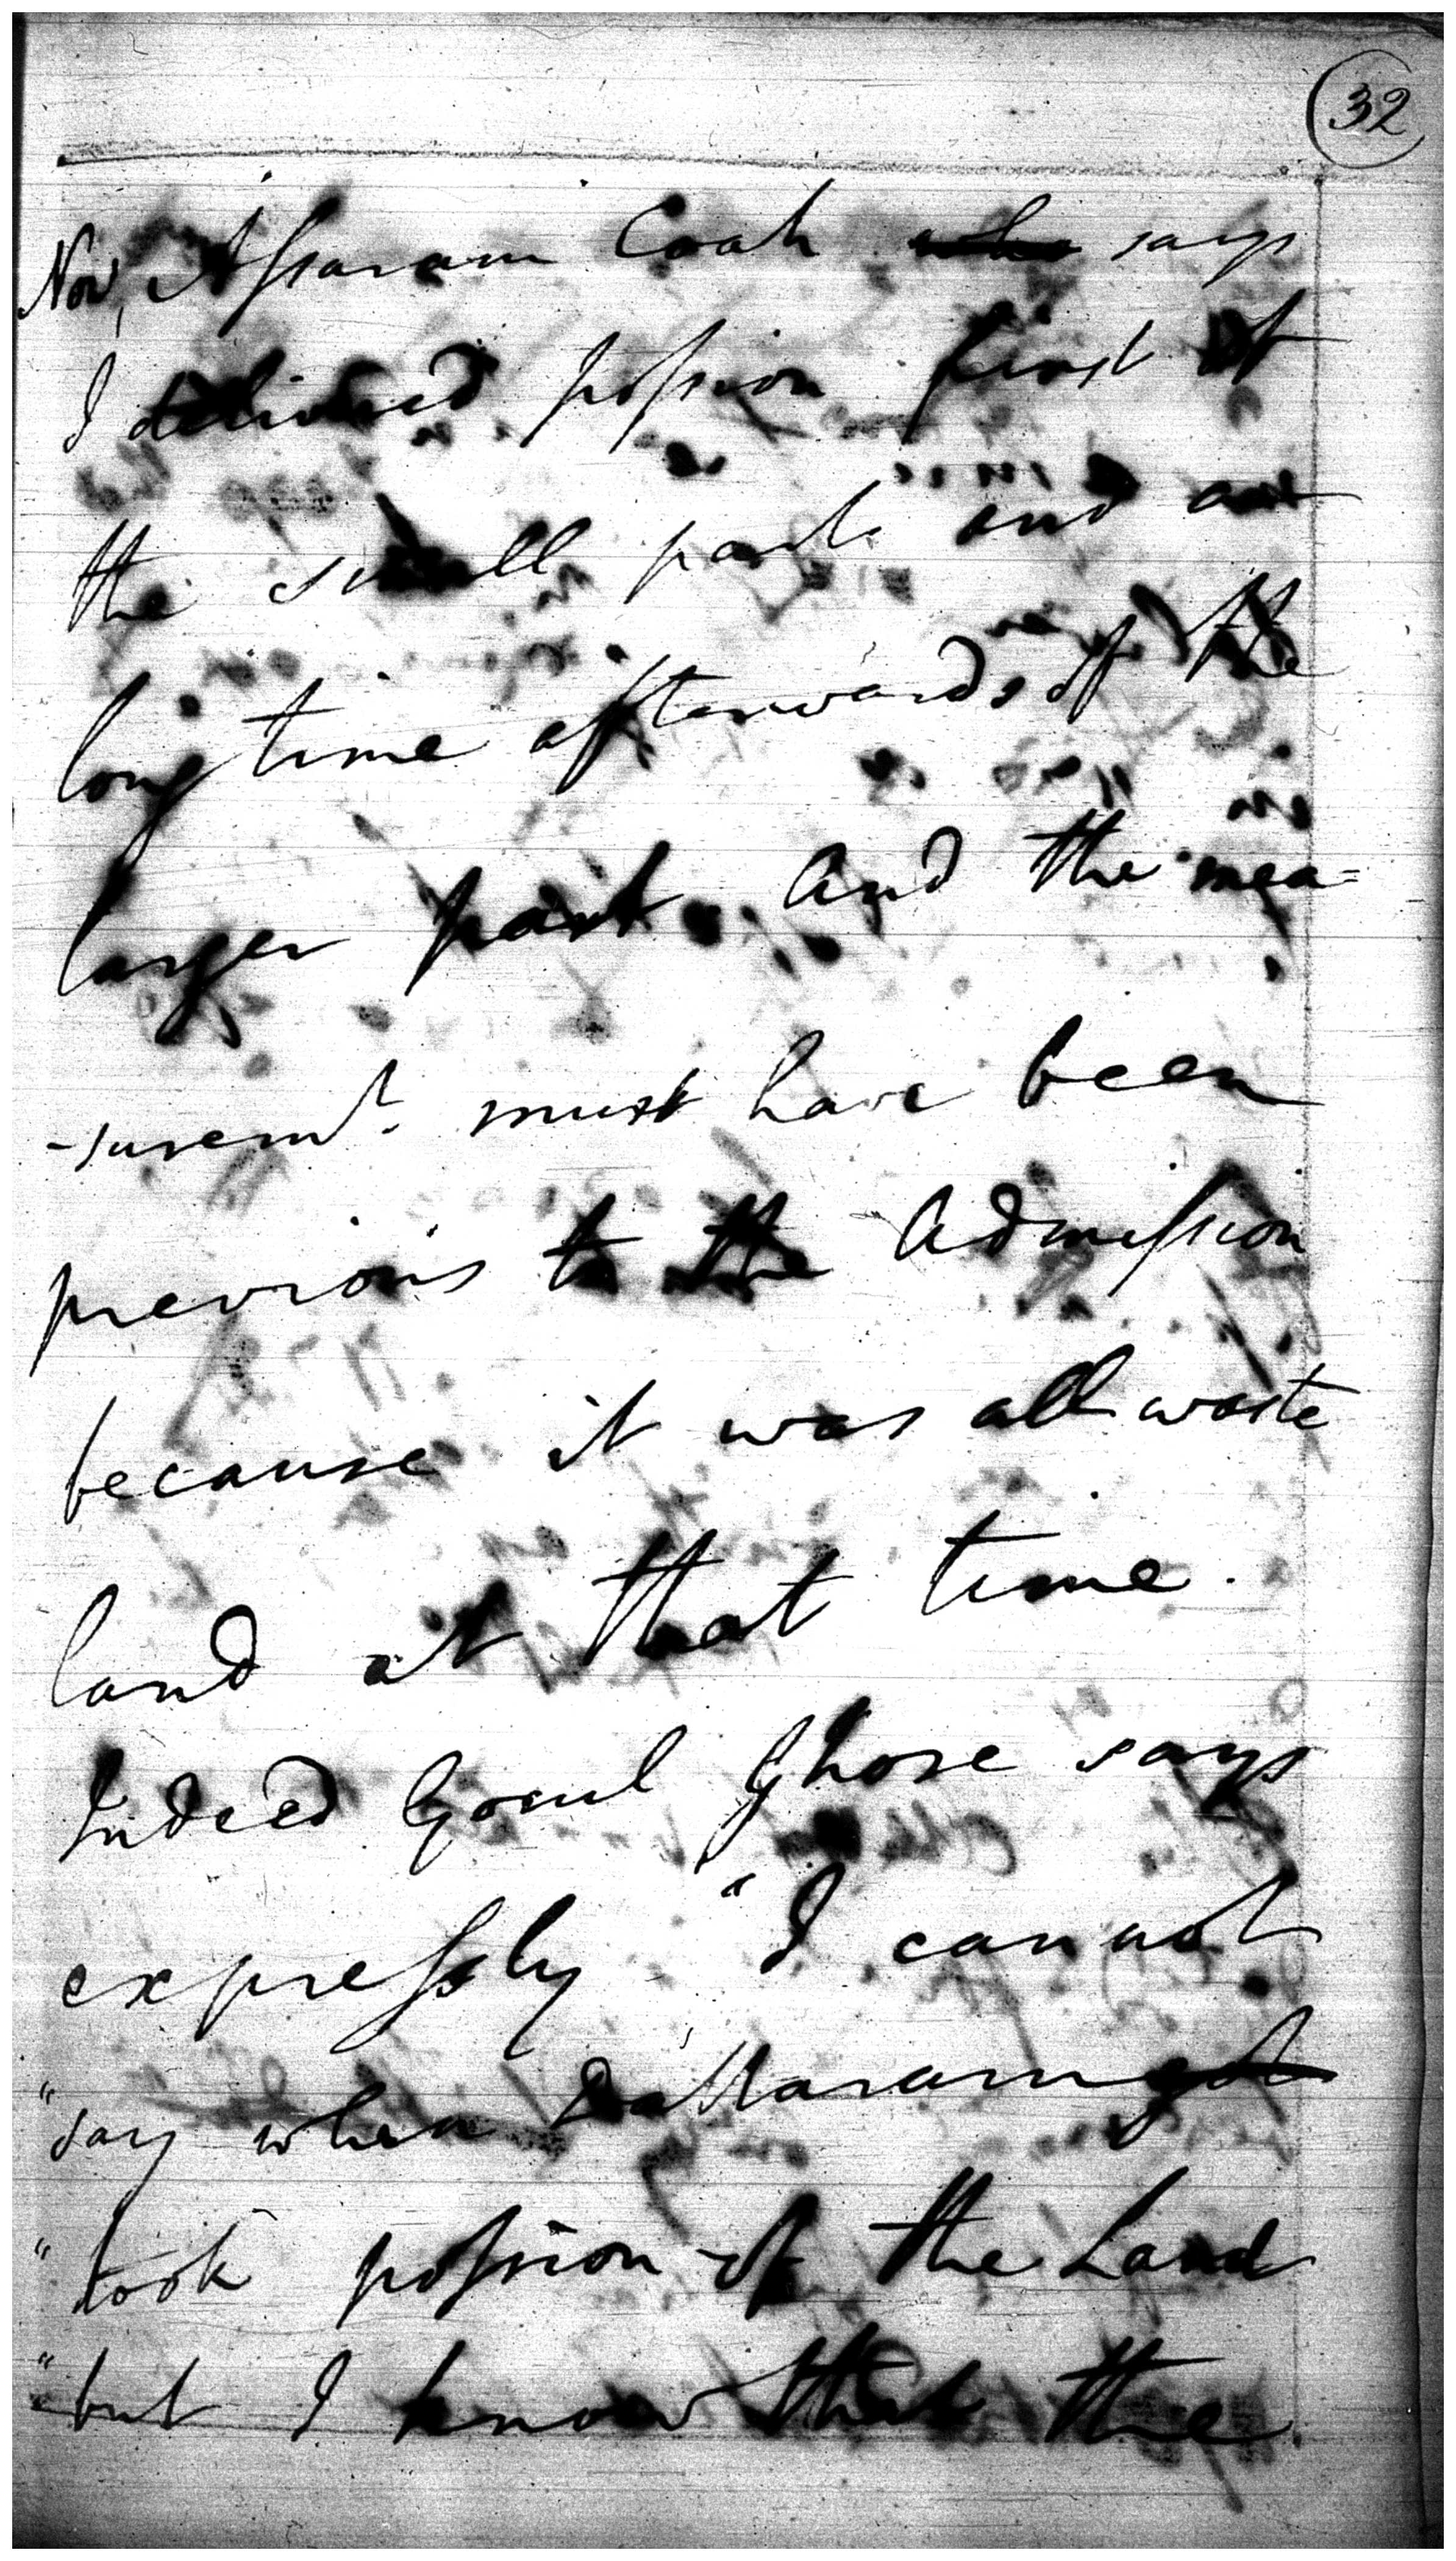 32
Now, Assaram Coah who says
I delivered possion first of
the small part and a
long time afterwards of the
larger part. And the mea=
-suremt. must have been
previous to the Admission
because it was all waste
land at that time.
Indeed Gocul Ghose says
expressly "I cannot
"say when Dattaram got
"took possion of the Land
"but I know that the